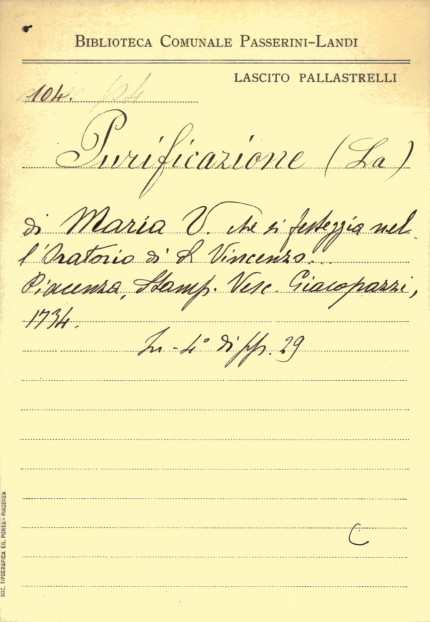 BIBLIOTECA COMUNALE PASSERINI-LANDI
LASCITO PALLASTRELLI
104. 104
Purificazione (La)
di Maria V. che si festeggia nel-
l'Oratorio di S. Vincenzo...
Piacenza, Stamp. Vesc. Giacopazzi,
1734.
In-4° di pp. 29
C
SOC. TIPOGRAFICA ED. PORTA - PIACENZA